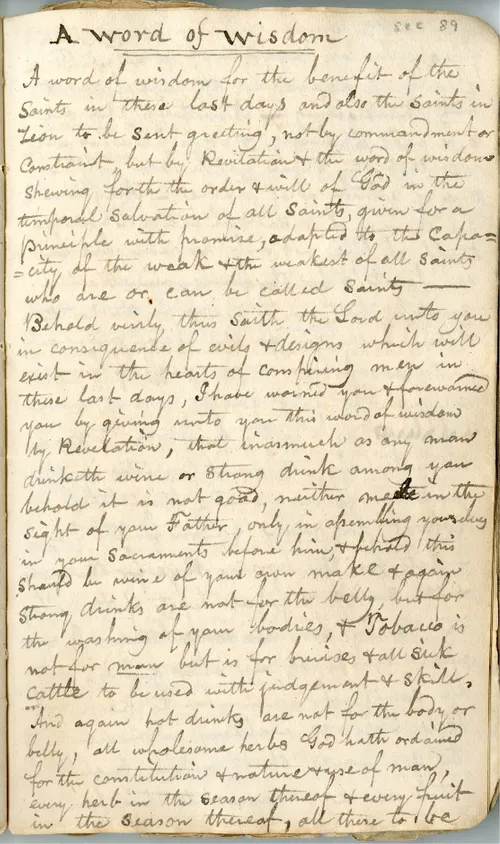 A word of wisdom
Sec 89
A word of wisdom for the benefit of the
Saints in these last days and also the Saints in
Zion to be sent greeting, not by commandment or
Constraint but by Revelation & the word of wisdom
Shewing forth the order & will of God in the
temporal Salvation of all Saints, given for a
principle with promise, adapted to the Capa=
=city, of the weak & the weakest of all Saints
who are or can be called Saints —
Behold verily thus Saith the Lord unto you
in consequence of evils & designs which will
exist in the hearts of conspiring men in
these last days, I have warned you & forewarned
you by giving unto you this word of wisdom
by Revelation, that inasmuch as any man
drinketh wine or Strong drink among you
behold it is not good, neither in the
Sight of your Father, only in assembling yourselves
in your Sacraments before him, & behold this
Should be wine of your own make & again
Strong drinks are not for the belly but for
the washing of your bodies, & Tobacco is
not for man but is for bruises & all Sick
Cattle to be used with judgement & Skill,
And again hot drinks are not for the body or
belly, all wholesome herbs God hath ordained
for the constitution & nature & use of man,
every herb in the Season thereof & every fruit
in the Season thereof, all these to be